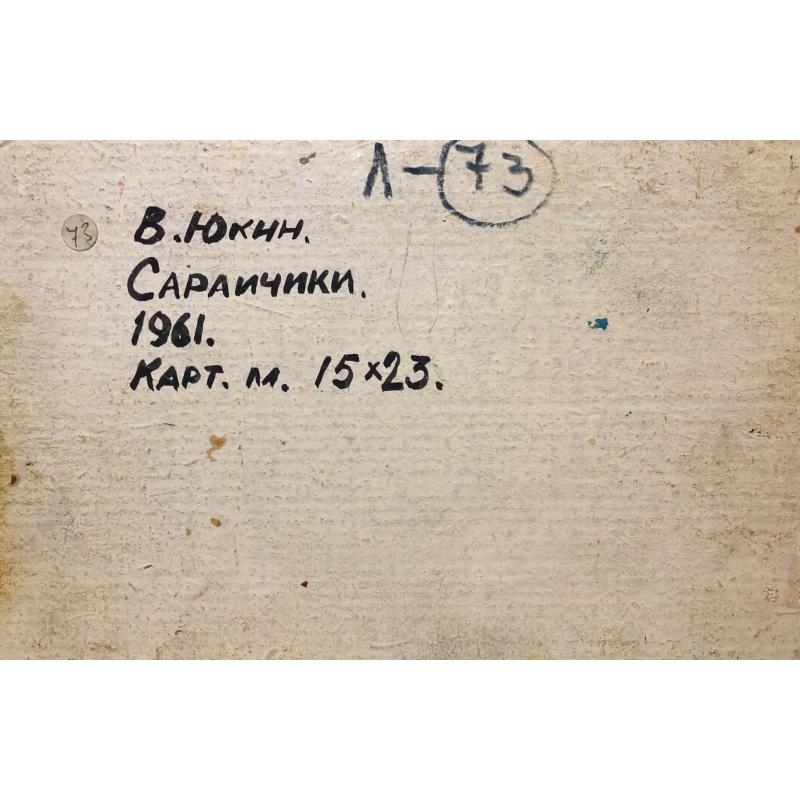 Л-73
73
В. Юкин.
Сараичики.
1961.
Карт. м. 15х23.